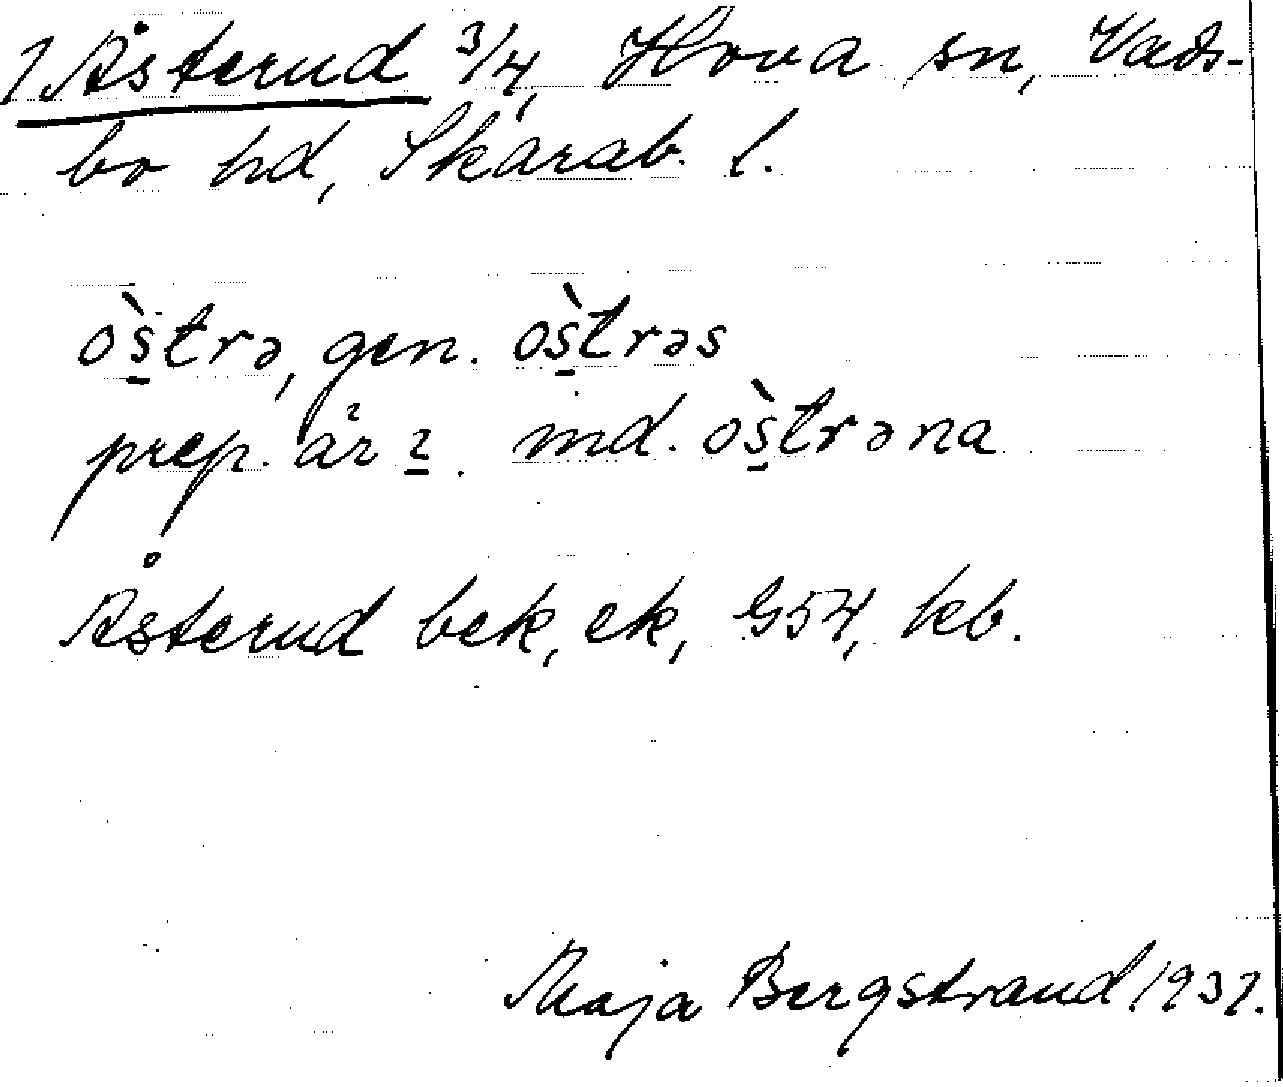 1 Åsterud 3/4, Hova sn, Vads-
bo hd, Skarab. l.
òs̱trə, gen. òs̱trəs
prep. i md. òs̱trəna
Åsterud bek, ek, G54, kb.
Maja Bergstrand 1937.